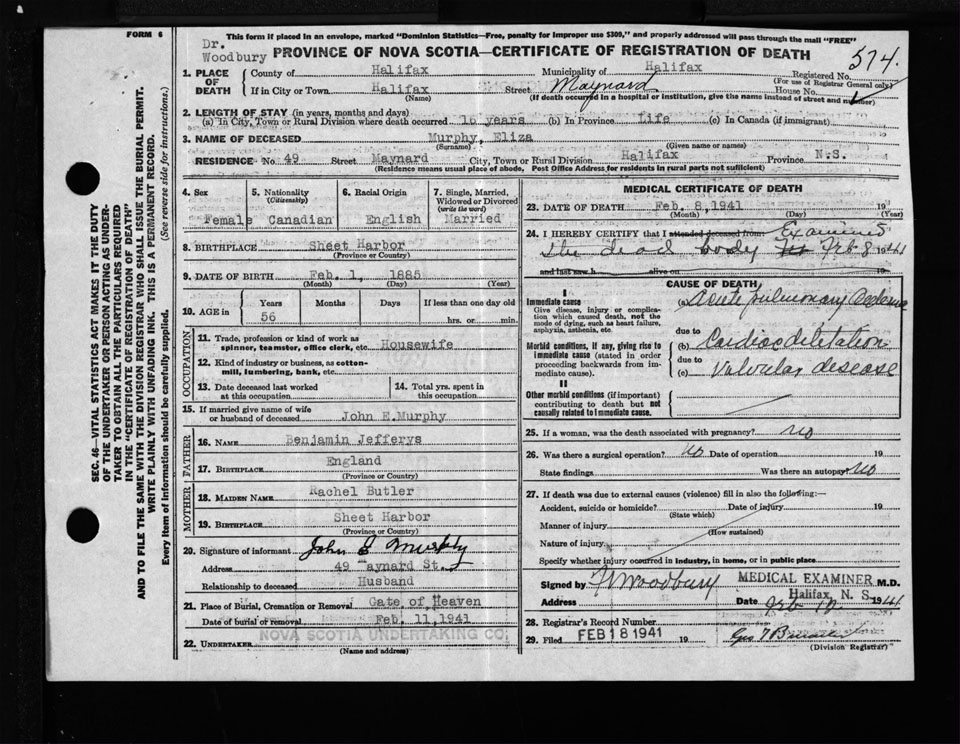 This form if placed in an envelope, marked "Dominion Statistics—Free, penalty for improper use $300," and properly addressed will pass through the mail "FREE"
FORM 6
Dr. Woodbury
PROVINCE OF NOVA SCOTIA—CERTIFICATE OF REGISTRATION OF DEATH
574.
1. PLACE OF DEATH { County of Halifax Municipality of Halifax Registered No.
(For use of Registrar General only)
If in City or Town Halifax Street Maynard House No.
(Name) (If death occurred in a hospital or institution, give the name instead of street and number)
2. LENGTH OF STAY (in years, months and days)
(a) In City, Town or Rural Division where death occurred 16 years (b) In Province Life (c) In Canada (if immigrant)
3. NAME OF DECEASED Murphy, Eliza
(Surname) (Given name or names)
RESIDENCE No. 49 Street Maynard City, Town or Rural Division Halifax Province N.S.
(Residence means usual place of abode. Post Office Address for residents in rural parts not sufficient)
4. Sex Female
5. Nationality (Citizenship) Canadian
6. Racial Origin English
7. Single, Married, Widowed or Divorced (write the word) Married
8. BIRTHPLACE Sheet Harbor
(Province or Country)
9. DATE OF BIRTH Feb. 1, 1885
(Month) (Day) (Year)
10. AGE in Years Months Days If less than one day old
56 hrs. or min.
OCCUPATION
11. Trade, profession or kind of work as spinner, teamster, office clerk, etc. Housewife
12. Kind of industry or business, as cotton-mill, lumbering, bank, etc.
13. Date deceased last worked at this occupation
14. Total yrs. spent in this occupation
15. If married give name of wife or husband of deceased John E. Murphy
FATHER
16. NAME Benjamin Jefferys
17. BIRTHPLACE England
(Province or Country)
MOTHER
18. MAIDEN NAME Rachel Butler
19. BIRTHPLACE Sheet Harbor
(Province or Country)
20. Signature of informant John E Murphy
Address 49 Maynard St.
Relationship to deceased Husband
21. Place of Burial, Cremation or Removal Gate of Heaven
Date of burial or removal Feb. 11, 1941
22. UNDERTAKER NOVA SCOTIA UNDERTAKING CO.
(Name and address)
MEDICAL CERTIFICATE OF DEATH
23. DATE OF DEATH Feb. 8, 1941 19
(Month) (Day) (Year)
24. I HEREBY CERTIFY that I attended deceased from: Examined
the dead body Feb 8 1941
and last saw h alive on 19
CAUSE OF DEATH
I
Immediate cause
Give disease, injury or complication which caused death, not the mode of dying, such as heart failure, asphyxia, asthenia, etc.
(a) Acute pulmonary oedema
due to
Morbid conditions, if any, giving rise to immediate cause (stated in order proceeding backwards from immediate cause).
(b) Cardiac diletation
due to
(c) Valvular disease
II
Other morbid conditions (if important) contributing to death but not causally related to immediate cause.
25. If a woman, was the death associated with pregnancy? no
26. Was there a surgical operation? no Date of operation 19
State findings Was there an autopsy? no
27. If death was due to external causes (violence) fill in also the following:—
Accident, suicide or homicide? Date of injury 19
(State which)
Manner of injury
(How sustained)
Nature of injury
Specify whether injury occurred in industry, in home, or in public place
Signed by Woodbury MEDICAL EXAMINER M.D.
Address Halifax, N. S.
Date Feb 10 1941
28. Registrar's Record Number
29. Filed FEB 18 1941 19
(Division Registrar)
SEC. 46—VITAL STATISTICS ACT MAKES IT THE DUTY
OF THE UNDERTAKER OR PERSON ACTING AS UNDER-
TAKER TO OBTAIN ALL THE PARTICULARS REQUIRED
IN THE "CERTIFICATE OF REGISTRATION OF DEATH"
AND TO FILE THE SAME WITH THE DIVISION REGISTRAR WHO SHALL ISSUE THE BURIAL PERMIT.
WRITE PLAINLY WITH UNFADING INK. THIS IS A PERMANENT RECORD.
Every item of information should be carefully supplied. (See reverse side for instructions.)